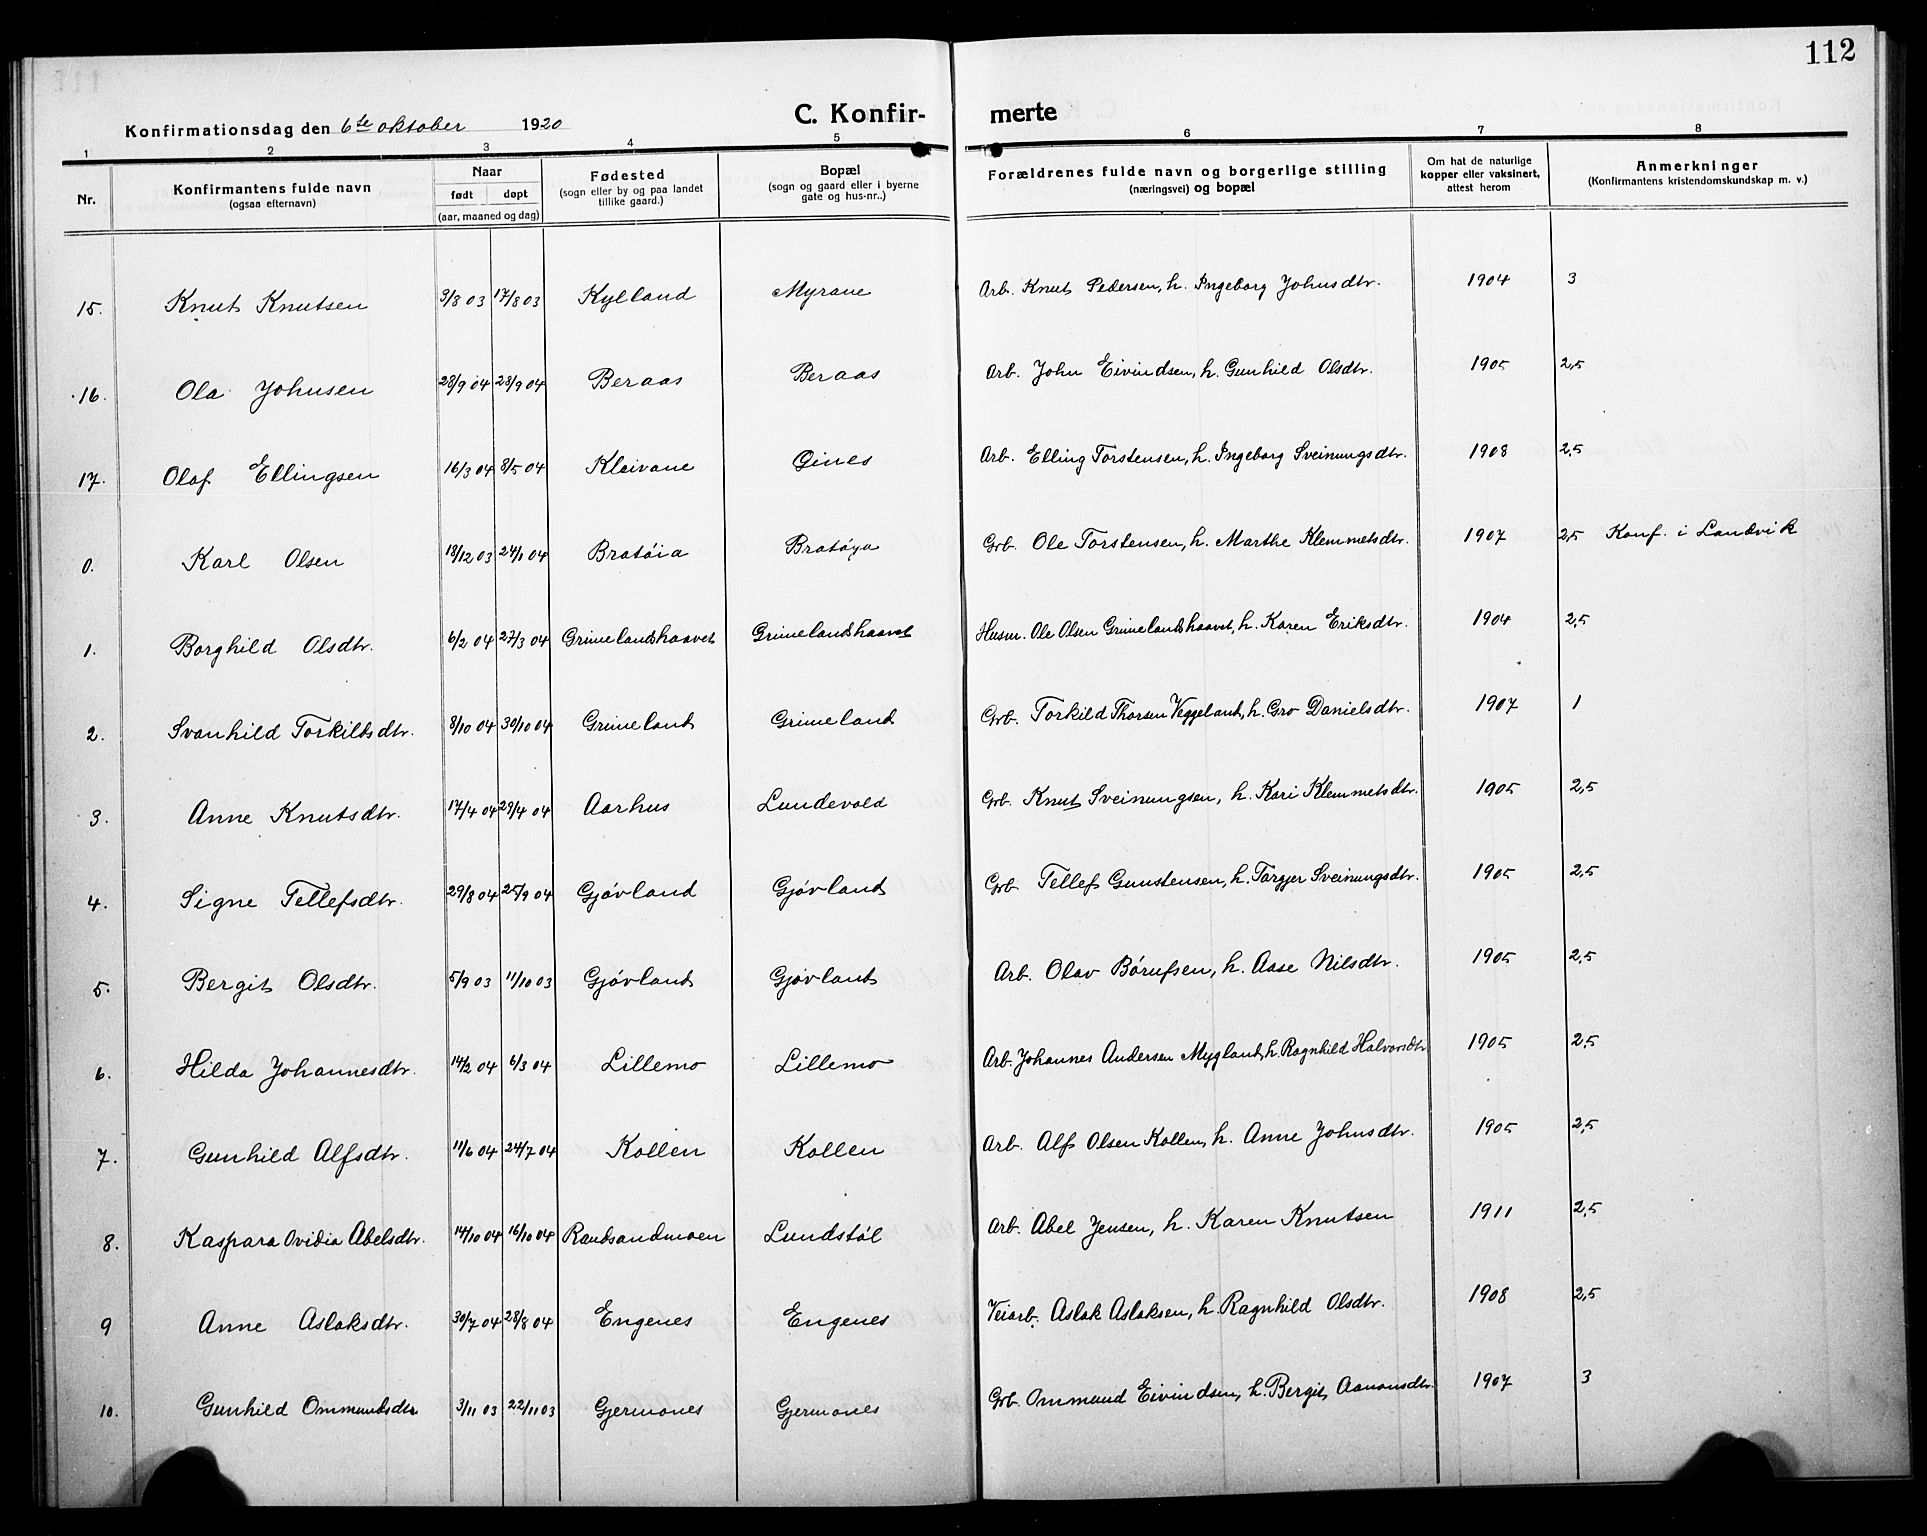 112
Konfirmationsdag den 6te oktober 1920 C. Konfir- merte
1 2 3 4 5 6 7 8
Nr. Konfirmantens fulde navn (ogsaa efternavn) Naar født døpt (aar, maaned og dag) Fødested (sogn eller by og paa landet tillike gaard.) Bopæl (sogn og gaard eller i byerne gate og hus-nr..) Forældrenes fulde navn og borgerlige stilling (næringsvei) og bopæl Om hat de naturlige kopper eller vaksinert, attest herom Anmerkninger (Konfirmantens kristendomskundskap m. v.)
15. Knut Knutsen 9/8 03 17/8 03 Kylland Myrane Arb. Knut Pedersen, h. Ingeborg Johnsdtr. 1904 3
16. Ola Johnsen 28/9 04 28/9 04 Beraas Beraas Arb. John Eivindsen, h. Gunhild Olsdtr. 1905 2,5
17. Olaf Ellingsen 16/3 04 8/5 04 Kleivane Øines Arb. Elling Torstensen, h. Ingeborg Sveinungsdtr. 1908 2,5
0. Karl Olsen 18/12 03 24/1 04 Bratøia Bratøya Grb. Ole Torstensen, h. Marthe Klemmetsdtr. 1907 2,5 Konf. i Landvik
1. Borghild Olsdtr. 6/2 04 27/3 04 Grimelandshaavet Grimelandshaavet Husm. Ole Olsen Grimelandshaavet, h. Karen Eriksdtr. 1904 2,5
2. Svanhild Torkildsdtr. 8/10 04 30/10 04 Grimeland Grimeland Grb. Torkild Thorsen Veggeland, h. Gro Danielsdtr. 1907 1
3. Anne Knutsdtr. 17/4 04 29/4 04 Aarhus Lundevold Grb. Knut Sveinungsen, h. Kari Klemmetsdtr. 1905 2,5
4. Signe Tellefsdtr. 29/8 04 25/9 04 Gjøvland Gjøvland Grb. Tellef Gunstensen, h. Targjer Sveinungsdtr. 1905 2,5
5. Bergit Olsdtr. 5/9 03 11/10 03 Gjøvland Gjøvland Arb. Olav Børufsen, h. Aase Nilsdtr. 1905 2,5
6. Hilda Johannesdtr. 14/2 04 6/3 04 Lillemo Lillemo Arb. Johannes Andersen Mygland, h. Ragnhild Halvorsdtr 1905 2,5
7. Gunhild Alfsdtr. 11/6 04 24/7 04 Kollen Kollen Arb. Alf Olsen Kollen, h. Anne Johnsdtr. 1905 2,5
8. Kaspara Ovidia Abelsdtr. 14/10 04 16/10 04 Randsandmoen Lundstøl Arb. Abel Jensen, h. Karen Knutsen 1911 2,5
9 Anne Aslaksdtr. 30/7 04 28/8 04 Engenes Engenes Veiarb. Aslak Aslaksen, h. Ragnhild Olsdtr. 1908 2,5
10. Gunhild Ommundsdtr 3/11 03 22/11 03 Gjermones Gjermones Grb. Ommund Eivindsen, h. Bergit Aanonsdtr. 1907 3